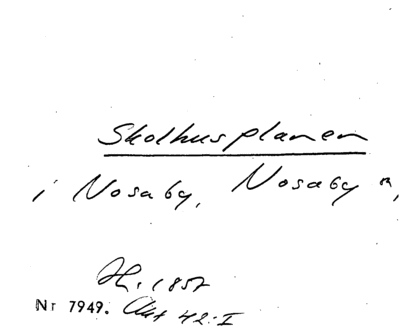 Skolhusplanen
i Nosaby, Nosaby sn,
1857
Nr 7949. Akt 42:I